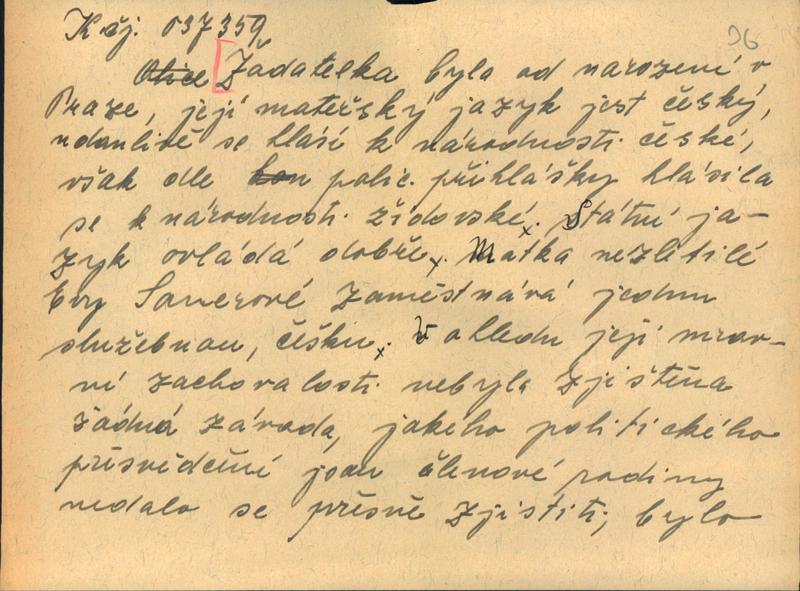 K čj. 037359
36
Obice Žadatelka byla od narození v
Praze, její mateřský jazyk jest český,
udanlivě se hlásí k národnosti české,
však dle kon polic. přihlášky hlásila
se k národnosti židovské. Státní ja-
zyk ovládá dobře. Matka nezletilé
Evy Sauerové zaměstnává jednu
služebnou, češku. V ohledu její mrav-
ní zachovalosti nebyla zjištěna
žádná závada, jakého politického
přesvědčení jsou členové rodiny
nedalo se přesně zjistiti, bylo